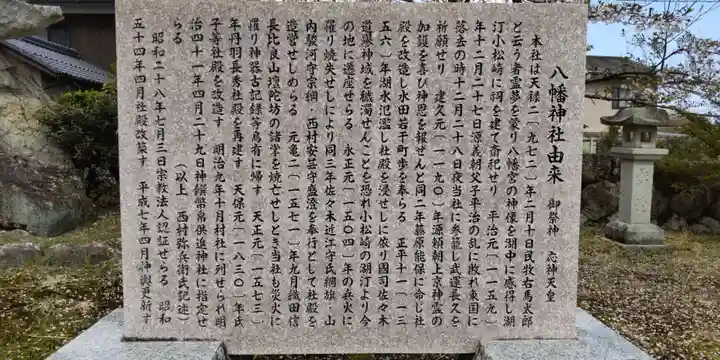 八幡神社由来　御祭神　応神天皇
本社は天禄二(九七二)年二月十日民牧右馬太郎
と云う者霊夢を蒙り八幡宮の神像を湖中に感得し湖
汀小松崎に祠を建て斎祀せり　平治元(一一五九)
年十二月二十七日源義朝父子平治の乱に敗れ東国に
落去の時十二月二十八夜当社に参籠し武運長久を
祈願せり　建久元(一一九〇)年源頼朝上京神霊の
加護を喜び神恩を報ぜんと同二年藤原能保に命じ社
殿を改造し水田若干町歩を奉らる　正平十一(一三
五六)年湖水氾濫し社殿を浸せしに依り国司佐々木
道誉神域を穢濁せんことを恐れ小松崎の湖汀より今
の地に遷座せらる　永正元(一五〇四)年の兵火に
罹り焼失せしにより同三年佐々木近江守氏綱旗・山
内駿河守宗綱・西村安芸守盛澄を奉行として社殿を
造営せしめらる　元亀二(一五七一)年九月織田信
長比良山壇陀坊の諸堂を焼亡せしとき当社も災火に
罹り神器も記録等烏有に帰す　天正元(一五七三)
年丹羽長秀社殿を再建す　天保元(一八三〇)年氏
子等社殿を改造す　明治九年十月村社に列せられ明
治四十一年四月二十九日神饌幣帛供進神社に指定せ
らる　(以上　西村弥兵衛氏記述)
昭和二十八年七月三日宗教法人認証せらる　昭和
五十四年四月社殿改築す　平成七年四月神輿更新す